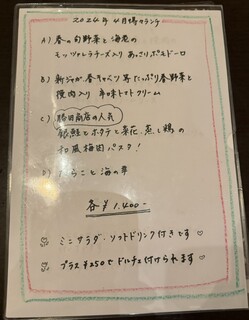 2024年 4月 ランチ
A) 春の旬野菜と海老の
モッツァレラチーズ入り あっさりポモドーロ
B) 新じゃが、春キャベツ たっぷり春野菜と
挽肉入り トマトクリーム
C) 勝田商店の人気
銀鮭とホタテと菜花、蒸し鶏の
和風梅肉パスタ!
D) たらこと海の幸
各 ¥1,400-
ミニサラダ・ソフトドリンク付きです
プラス¥250でドルチェ付けられます